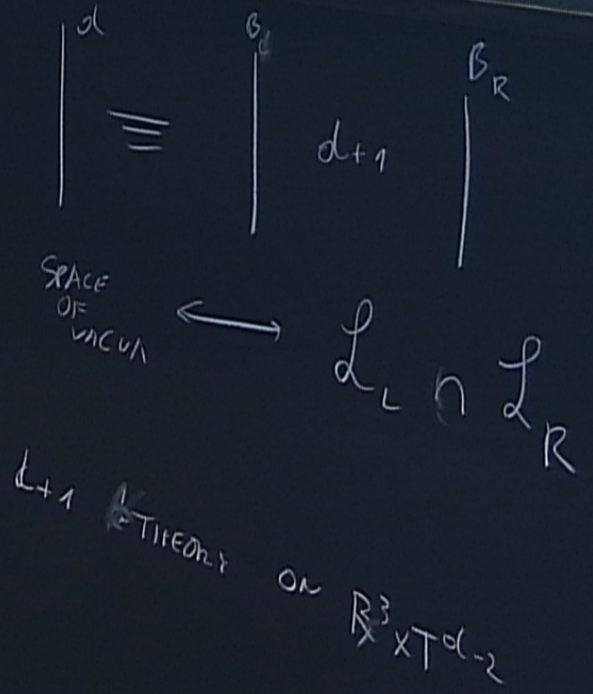 d B_L B_R
≡ d+1
SPACE
OF
VACUA ⟷ ℒ_L ∩ ℒ_R
d+1 THEORY ON R^3 × T^{d-2}